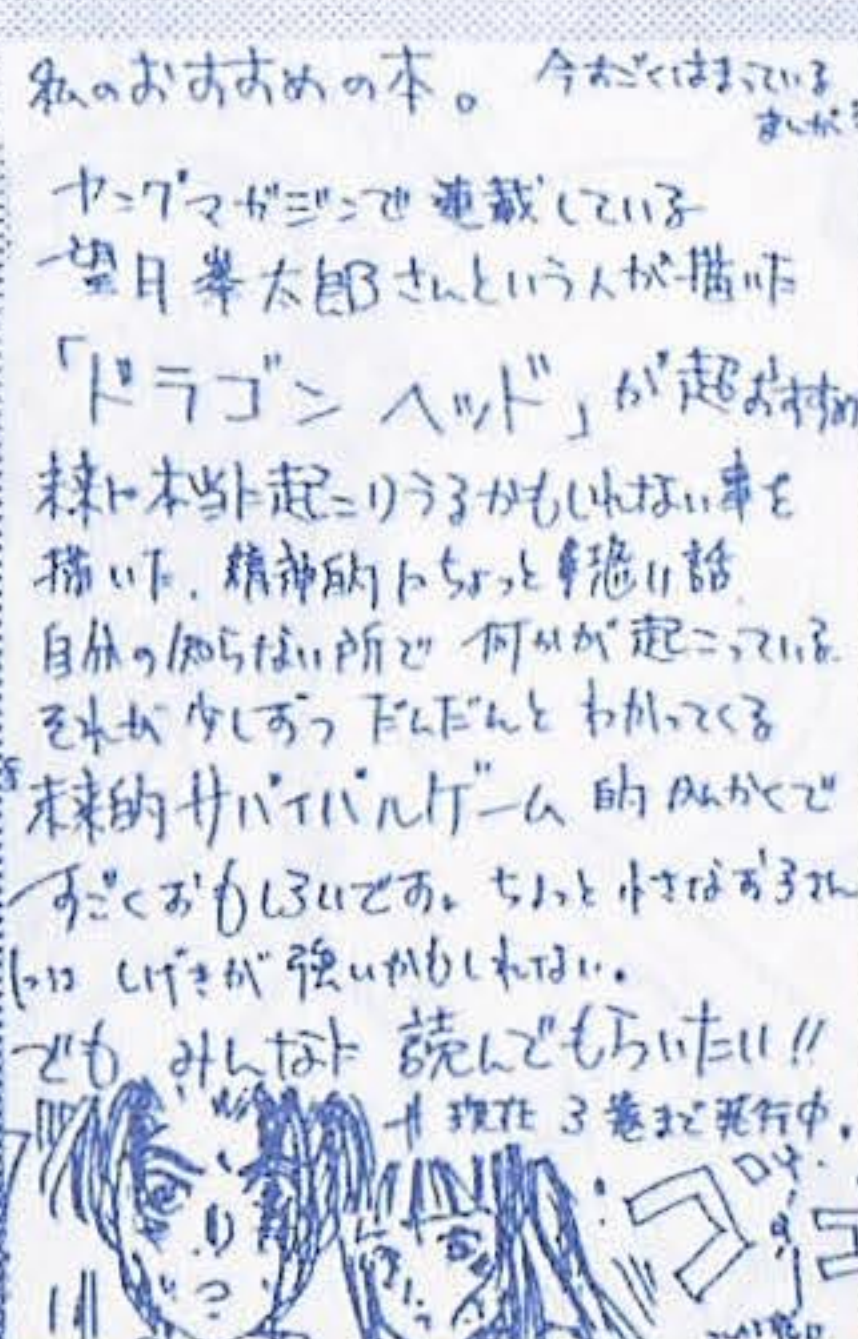 私のおすすめの本。 今すごくはまっている
まんが
ヤングマガジンで連載している
望月峯太郎さんという人が描いた
「ドラゴンヘッド」が超おすすめ
未来に本当に起こりうるかもしれない事を
描いた、精神的にちょっと恐い話
自分の知らない所で何かが起こっている
それが少しずつだんだんとわかってくる
未来的サバイバルゲーム的かんかくで
すごくおもしろいです。ちょっと小さなお子さん
には しげきが強いかもしれない。
でも みんなに 読んでもらいたい!!
現在 3巻まで発行中。
ゴ